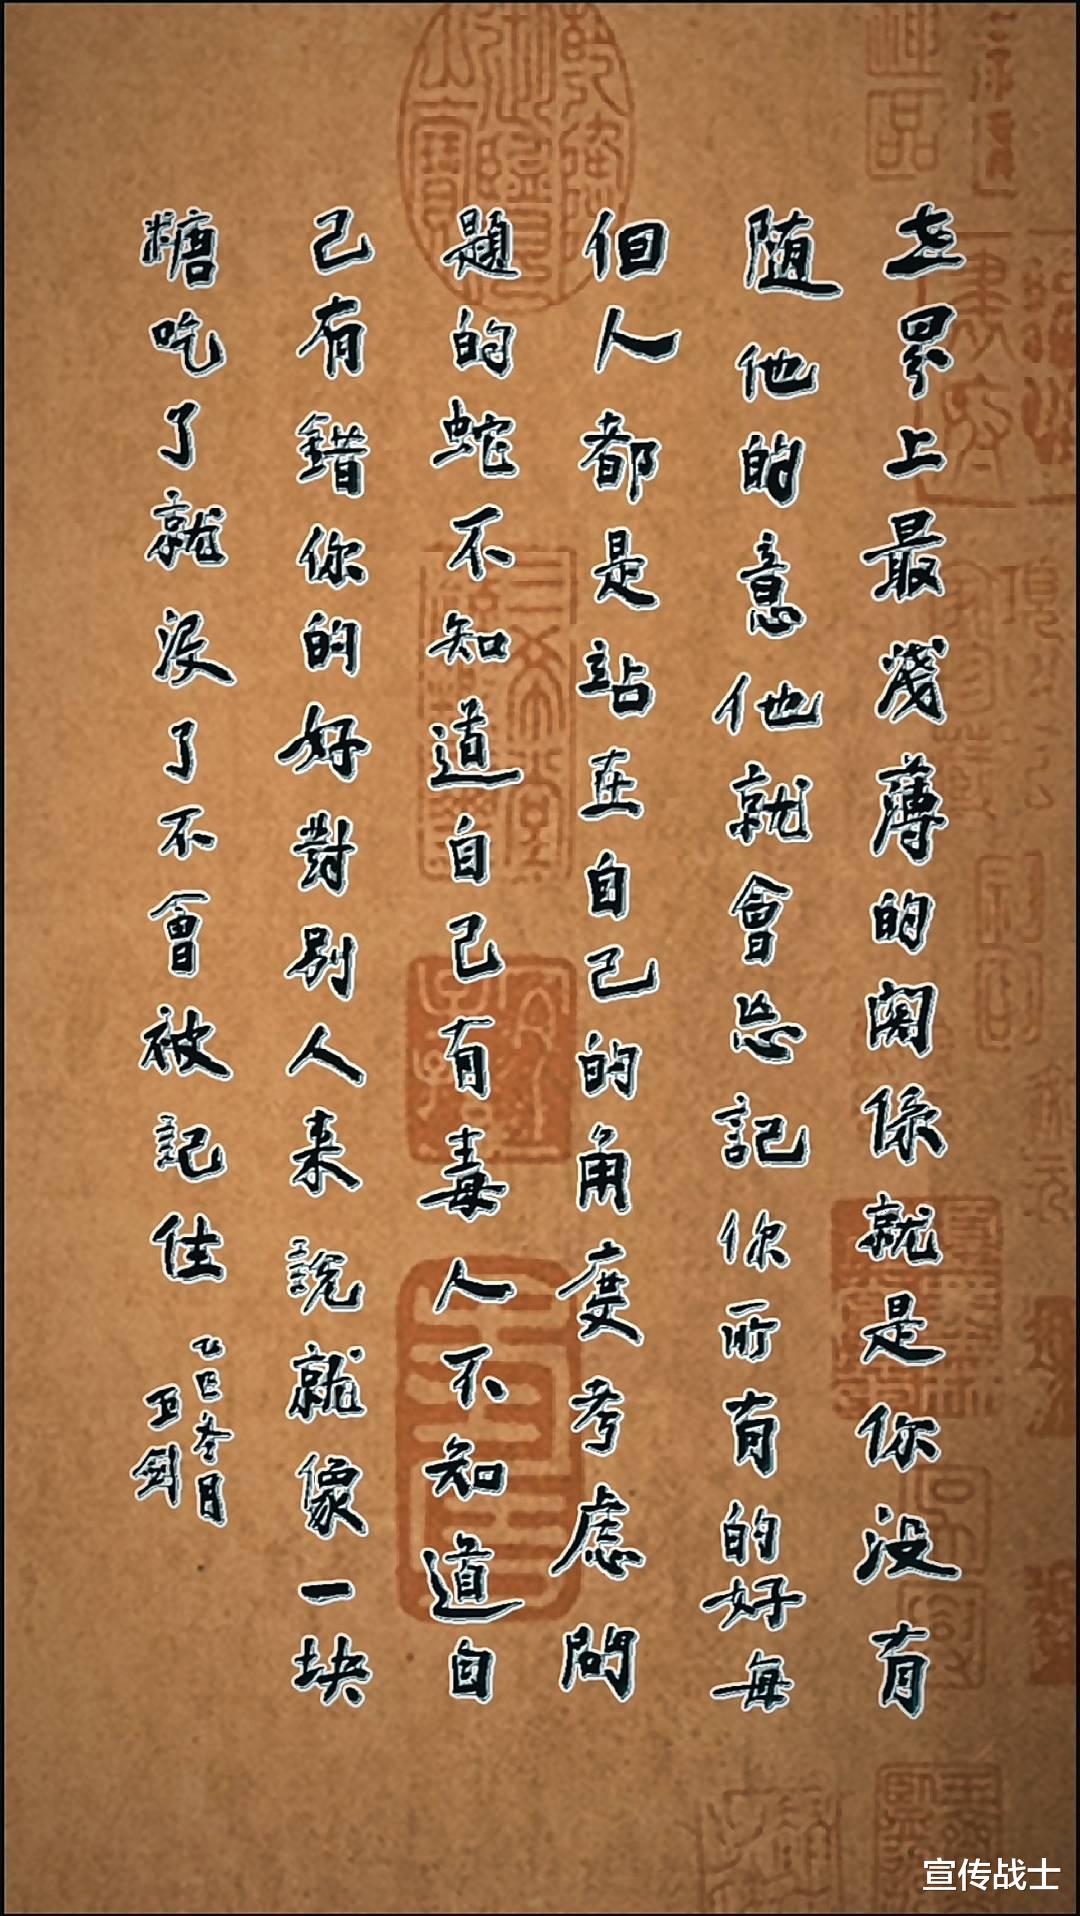 在界上最淺薄的関係就是你没有
随他的意他就會忘記你所有的好每
個人都是站在自己的角度考慮問
題的蛇不知道自己有毒人不知道自
己有錯你的好對别人来説就像一块
糖吃了就没了不會被記住
乙巳冬月
卫剑
宣传战士